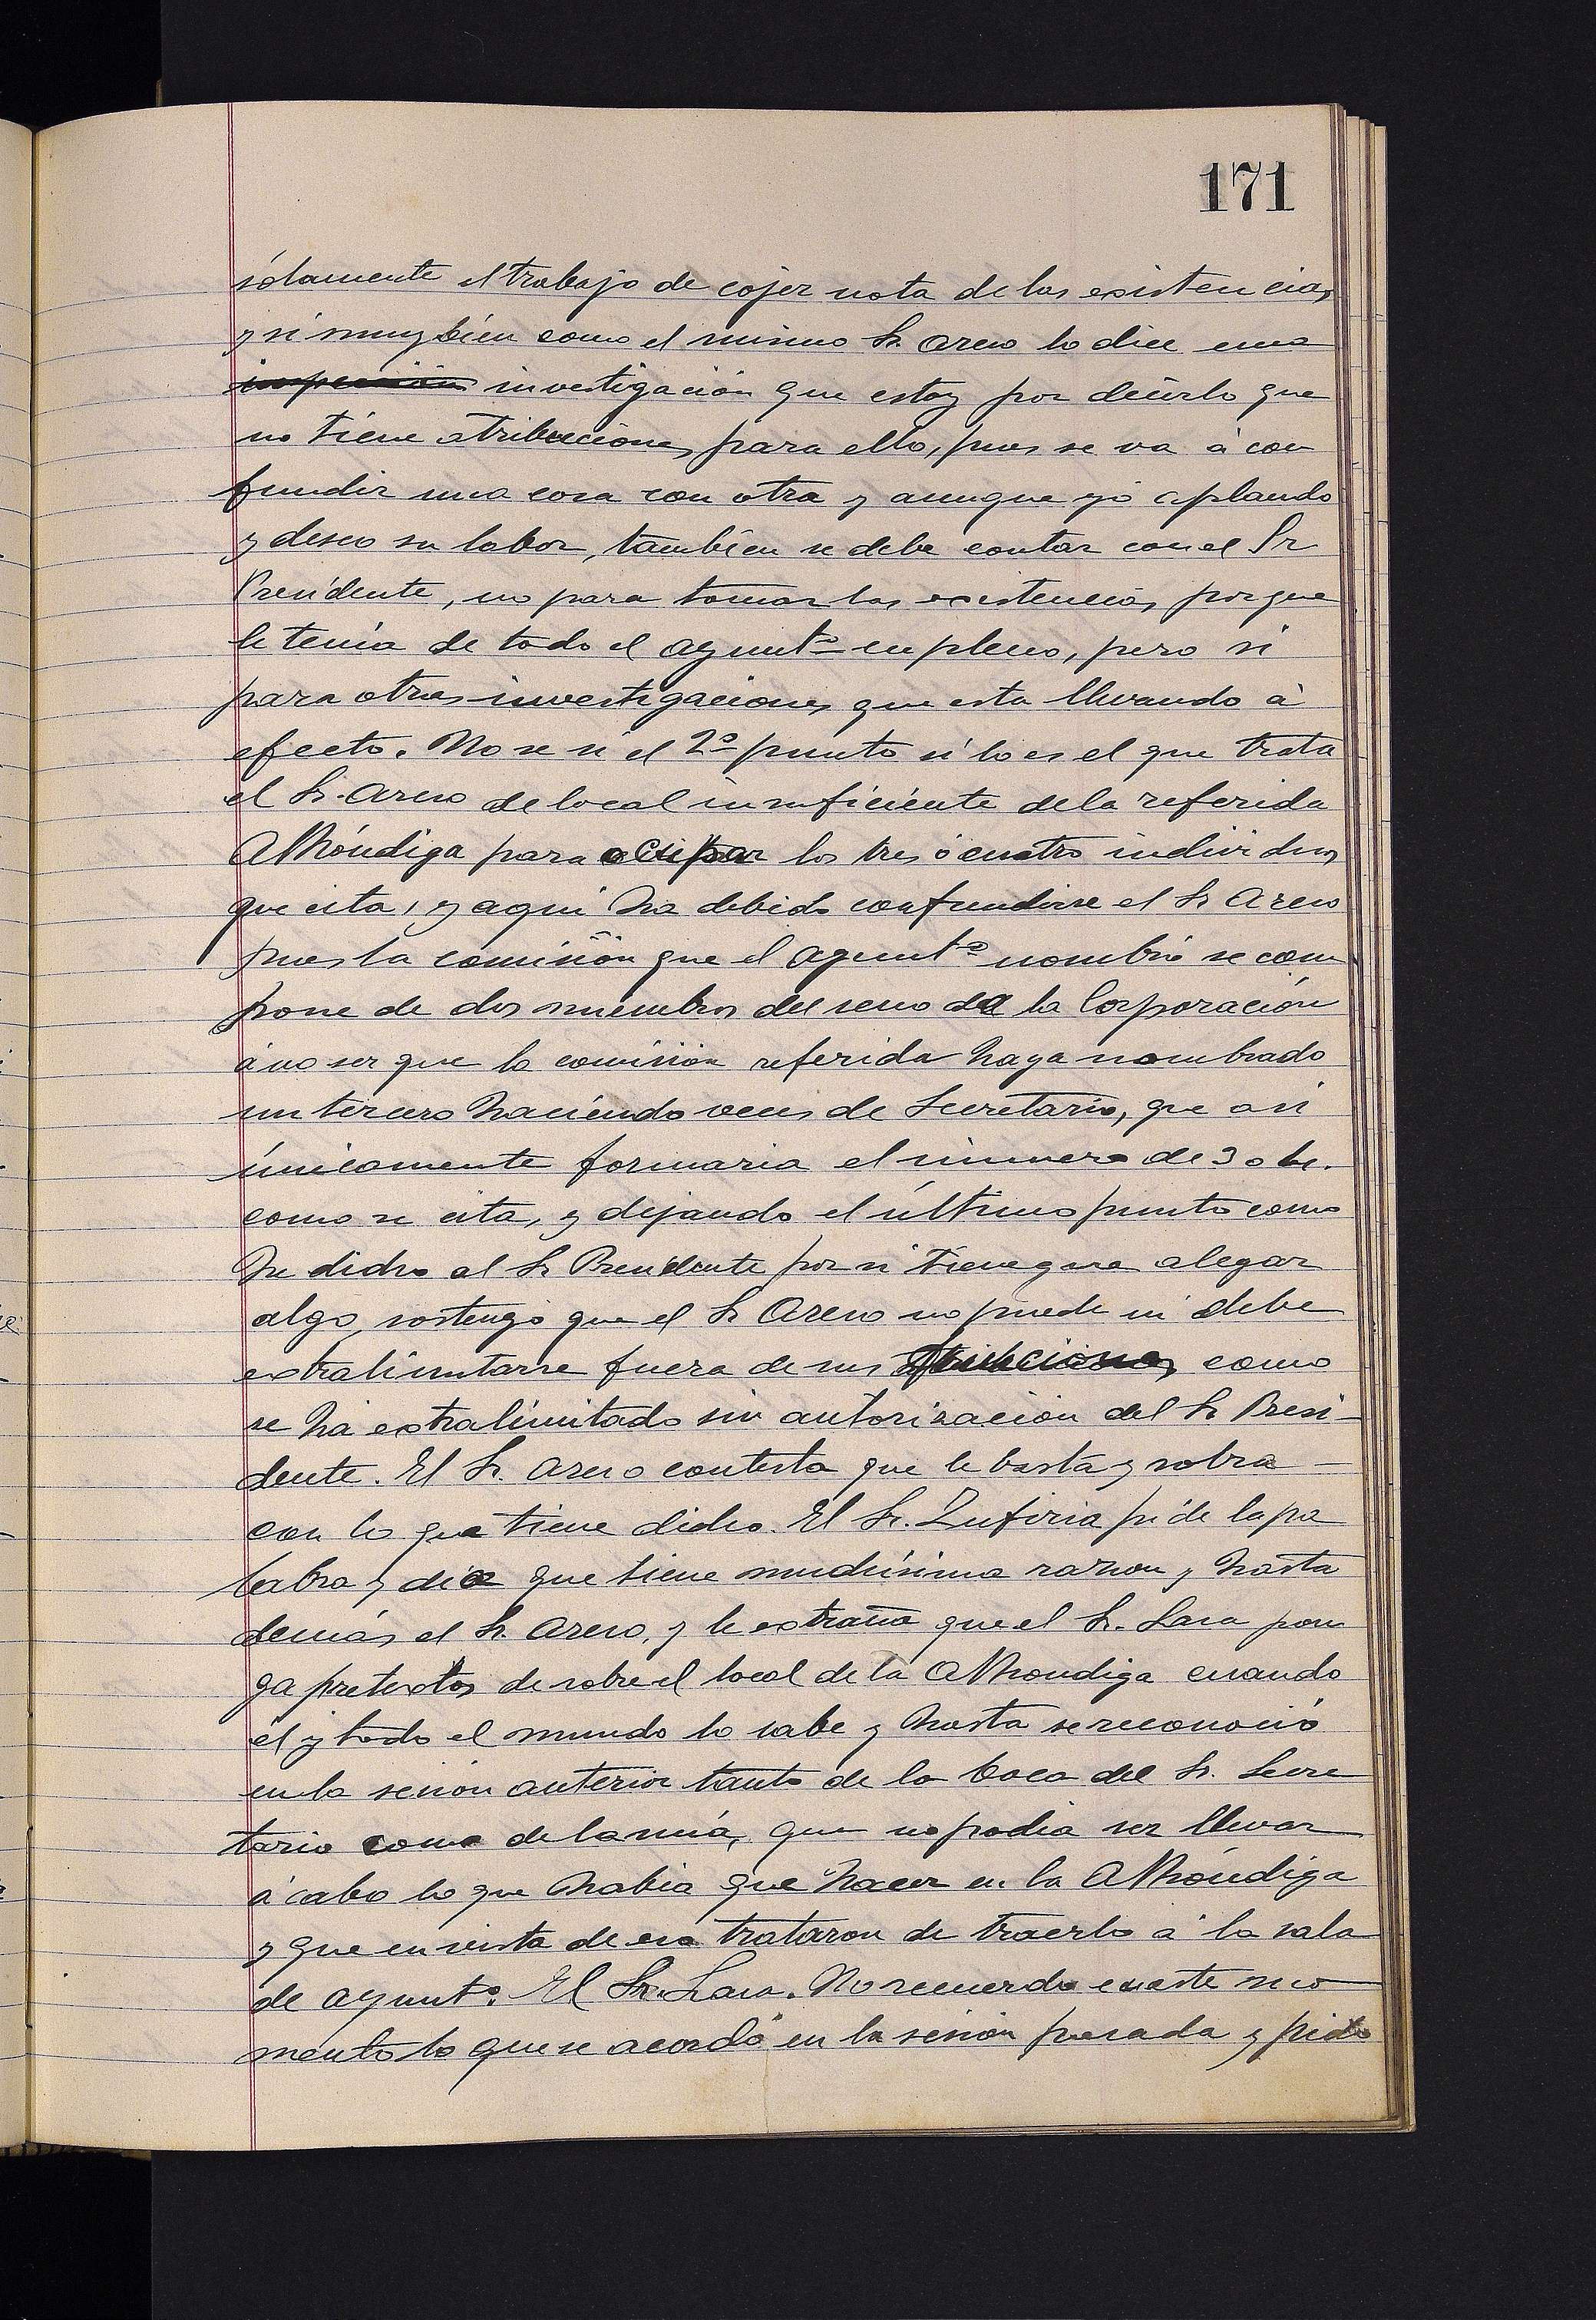 171
sólamente el trabajo de cojer nota de las existencias
y si muy bien como el mismo Sr. Arero lo dice una
investigación que estoy por decirlo que
no tiene atribuciones para ello, pues se va á con
fundir una cosa con otra y aunque yó aplaudo
y deseo su labor, tambien se debe contar con el Sr
Presidente, no para tomar las existencias, porque
le tenia de todo el ayuntº en pleno, pero si
para otras investigaciones que esta llevando á
efecto. No se si el 2º punto si lo es el que trata
el Sr. Arero de local insuficiente de la referida
Alhóndiga para ocupar los tres ó cuatro individuos
que cita, y aqui ha debido confundirse el Sr Arero
pues la comisión que el ayuntº nombró se com
pone de dos miembros del seno de la Corporación
á no ser que la comisión referida haya nombrado
un tercero haciendo veces de Secretario, que asi
únicamente formaria el número de 3 o 4.
como se cita, y dejando el último punto como
he dicho al Sr Presidente por si tiene que alegar
algo, sostengo que el Sr Arero no puede ni debe
extralimitarse fuera de sus atribuciones, como
se há extralimitado sin autorización del Sr Presi-
dente. El Sr. Arero contesta que le basta y sobra -
con lo que tiene dicho. El Sr. Zufiria pide la pa
labra y dice que tiene muchísima razon y hasta
demás el Sr. Arero, y le extraña que el Sr. Lara pon
ga pretextos de sobre el local de la Alhondiga cuando
él y todo el mundo lo sabe y hasta se reconoció
en la sesión anterior tanto de la boca del Sr. Secre
tario como de la mía, que no podia ser llevar
á cabo lo que habia que hacer en la Alhóndiga
y que en vista de eso trataron de traerlo á la sala
de ayuntº. El Sr. Lara. No recuerdo en este mo
mento lo que se acordó en la sesión pasada y pido